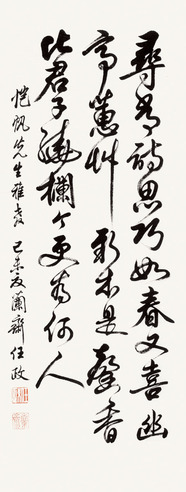 尋常詩思巧如春又喜幽
亭蕙艸新本是馨香
比君子繞欄今更為何人
愷帆先生雅教 己未夏蘭齋任政